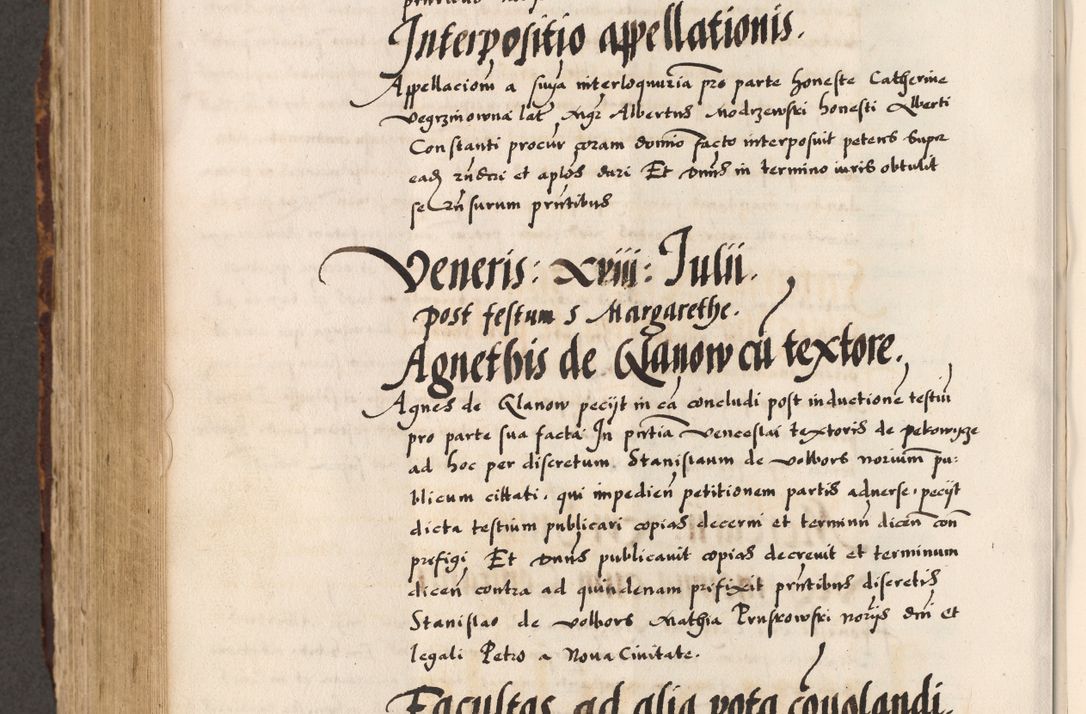 Interpositio appellationis.
Appellacionem a sua interloquutoria pro parte honeste Catherine
Vegrzinowna lat Mgr Albertus Modrzewski honesti Alberti
Constanti procur coram domino facto interposuit petens supr
ead et aplos dari Et dnns in termino iuris obtulit
se surum pñtibus
Veneris: xviii: Iulii.
post festum S Margarethe.
Agnethis de Glanow cū textore.
Agnes de Glanow pecijt in cā concludi post inductione testiū
pro parte sua facta In pñtia Venceslai textoris de
ad hoc per discretum Stanislaum de volbors norium pu:
blicum cittati, qui impedien petitionem partis aduerse, pecijt
dicta testium publicari copias decerni et terminū dicen con
prefigi Et dnns publicauit copias decreuit et terminum
dicen contra ad quindenam prifixit pñtibus discretis
Stanislao de volbors Mathia Pruskowski norijs dni et
legali Petro a Noua Ciuitate.
Facultas ad alia vota conolandi.